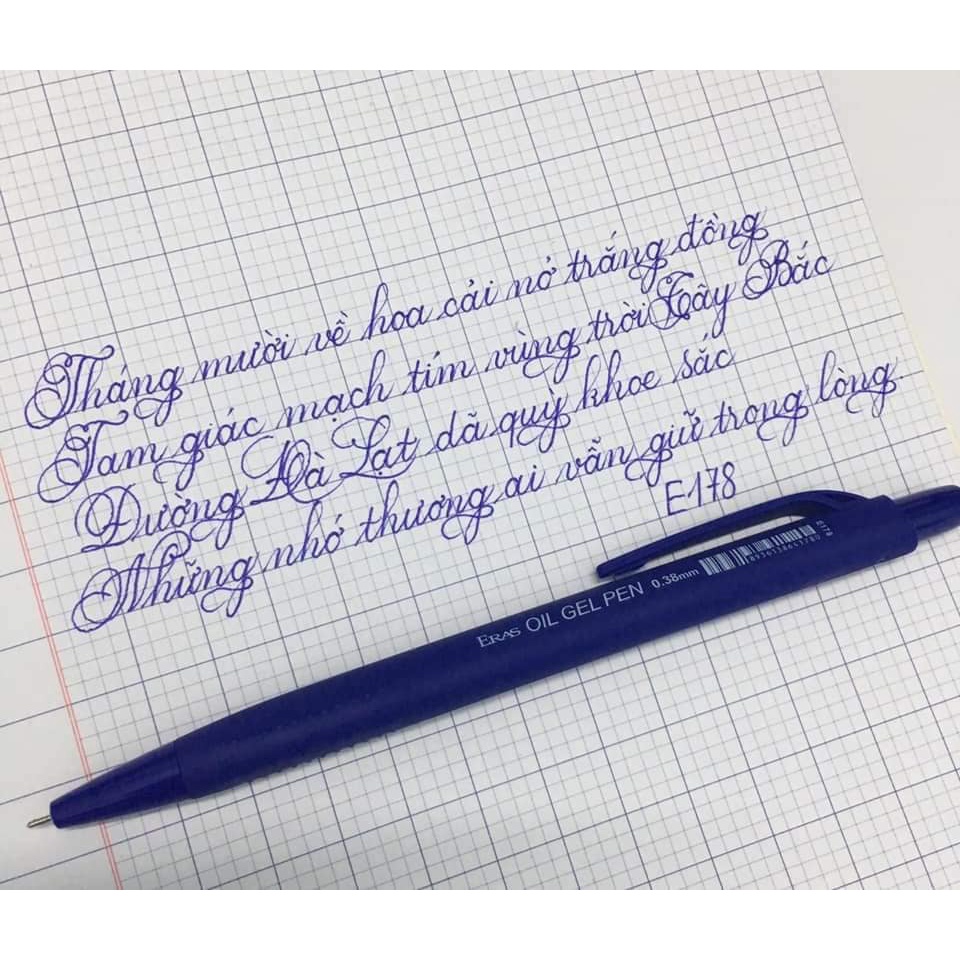 Tháng mười về hoa cải nở trắng đồng
Tam giác mạch tím vùng trời Tây Bắc
Đường Đà Lạt dã quỳ khoe sắc
Những nhớ thương ai vẫn giữ trong lòng
E-178
ERAS OIL GEL PEN 0.38mm
8936138643780
E178